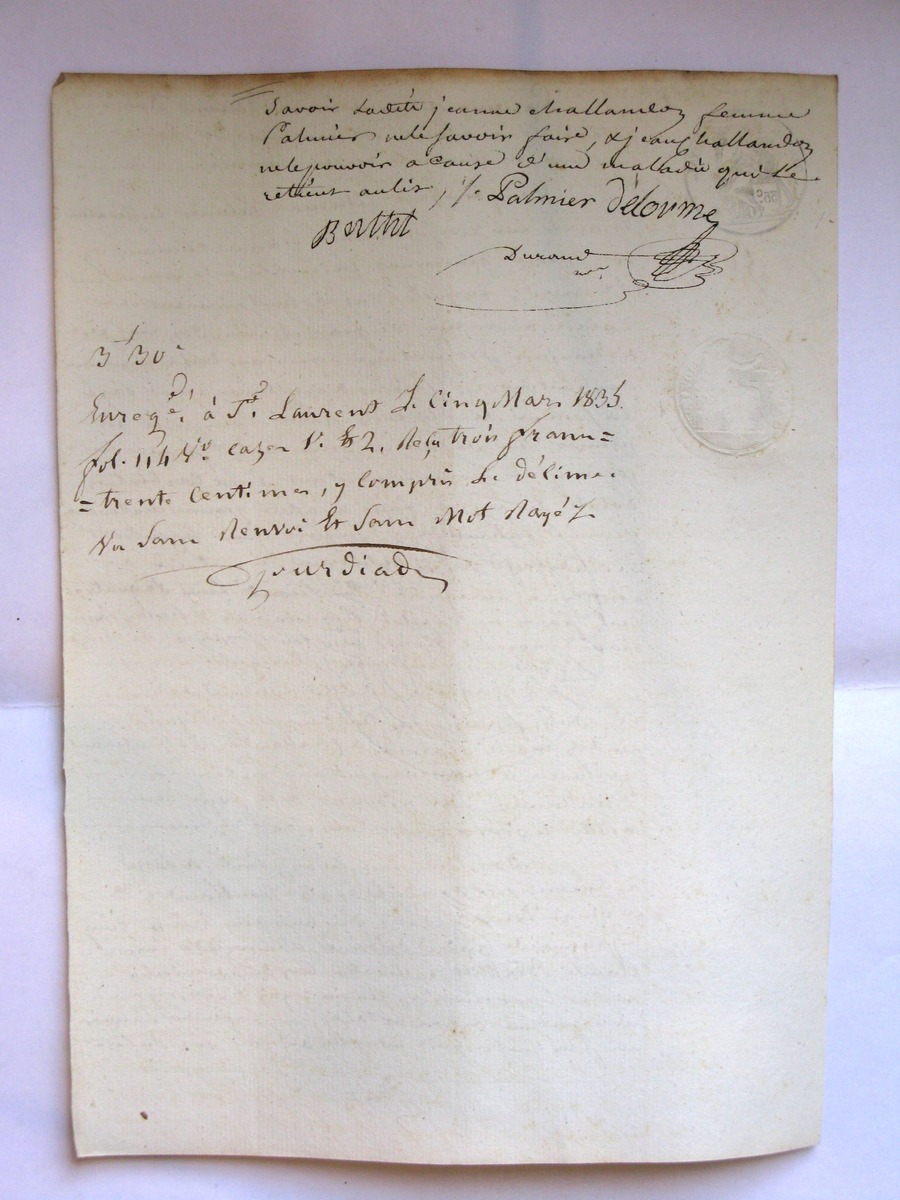 Savoir ladite jeanne challandon femme
Palmier ne le savoir faire, & jean challandon
ne le pouvoir a cause d'une maladie qui le
retient au lit, /. Palmier Délorme
Bertht
Durand
nre
3f 30c
Enregé. à St. Laurent le Cinq Mars 1835.
fol. 114 Vo. cazes 1. et 2. Reçu trois francs =
= trente Centimes, y Compris le décime.
Vu sans Renvoi Et Sans Mot Rayé